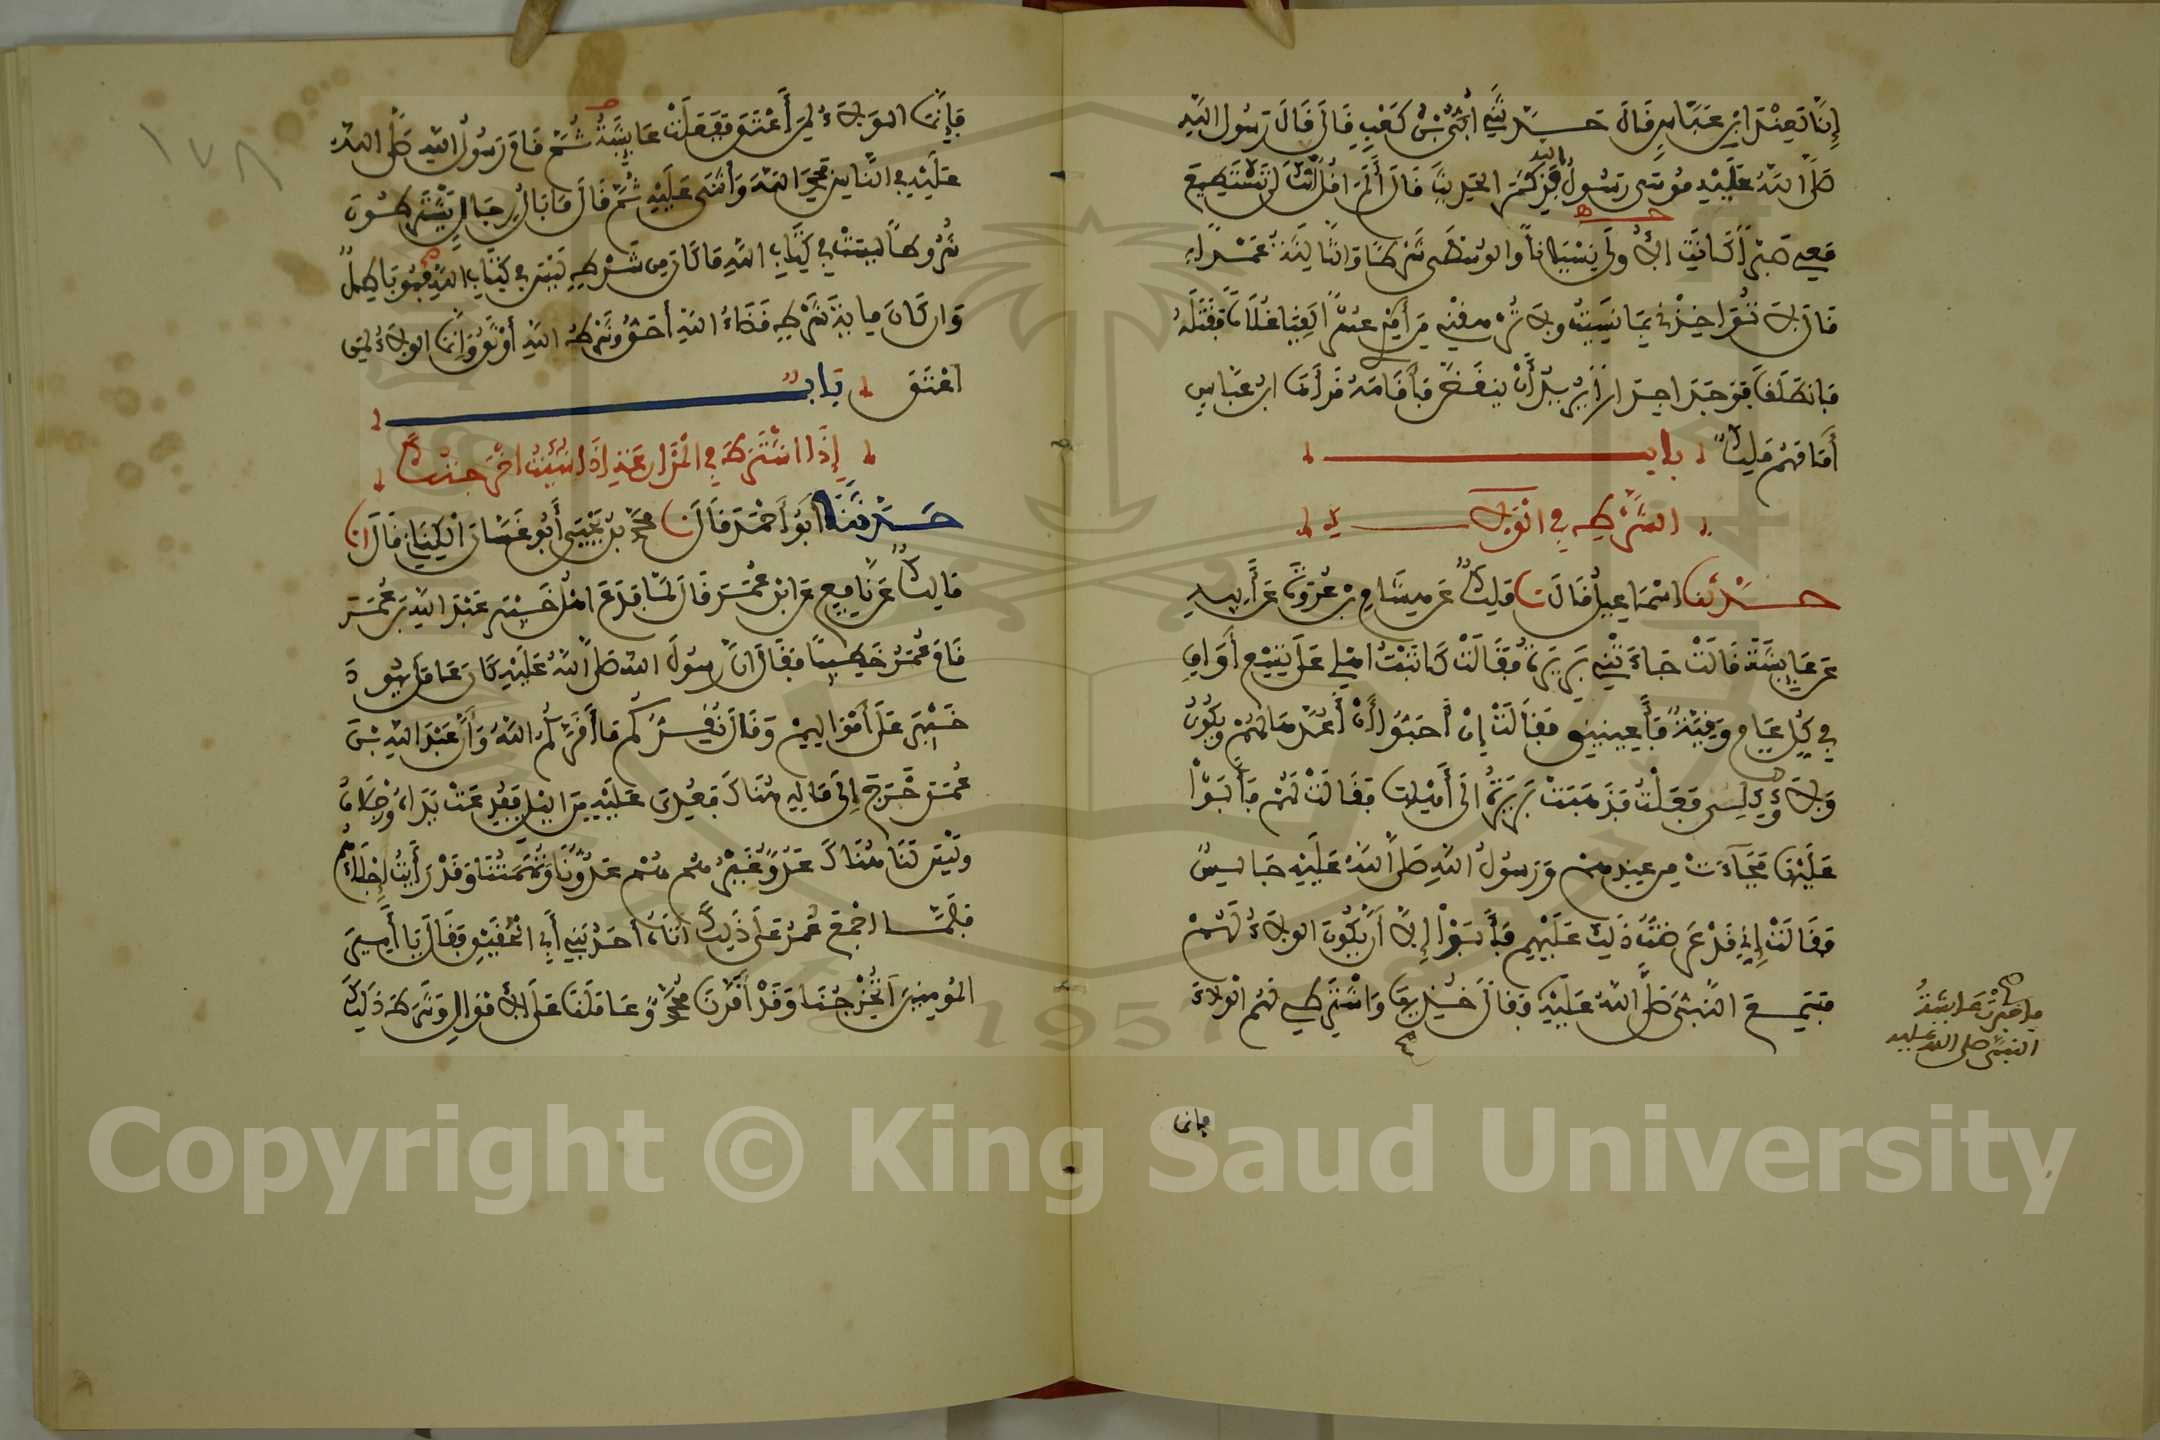 إِنَّا لَعِنْدَ ابْنِ عَبَّاسٍ قَالَ حَدَّثَنِي أُبَيُّ بْنُ كَعْبٍ قَالَ قَالَ رَسُولُ اللهِ
صَلَّى اللهُ عَلَيْهِ مُوسَى رَسُولُ اللهِ فَذَكَرَ الْحَدِيثَ قَالَ أَلَمْ اقُلْ إنَّكَ لَنْ تَسْتَطِيعَ
مَعِي صَبْراً كَانَتِ الأُولَى نِسْيَاناً وَالْوُسْطَى شَرْطاً وَالثَّالِثَةُ عَمْداً
قَالَ لاَ تُؤَاخِذْنِي بِمَا نَسِيتُ وَلاَ تُرْهِقْنِي مِنْ أَمْرِي عُسْراً لَقِيَا غُلاَماً فَقَتَلَهُ
فَانْطَلَقَا فَوَجَدَا جِدَاراً يُرِيدُ أَنْ يَنْقَضَّ فَأَقَامَهُ قَرَأَهَا ابْنُ عَبَّاسٍ
أَمَامَهُمْ مَلِكٌ بَاب
الشَّرْطِ فِي الْوَلاَءِ
حَدَّثَنَا اسْمَاعِيلُ قَالَ نا مَلِكٌ عَنْ هِشَامِ بْنِ عُرْوَةَ عَنْ أَبِيهِ
عَنْ عَايِشَةَ قَالَتْ جَاءَتْنِي بَرِيرَةُ فَقَالَتْ كَاتَبْتُ اهْلِي عَلَى تِسْعِ أَوَاقٍ
فِي كُلِّ عَامٍ وَقِيَّةٌ فَأَعِينِينِي فَقَالَتْ إِنْ أَحَبُّوا أَنْ أَعُدَّهَا لَهُمْ وَيَكُونُ
وَلاَؤُكِ لِي فَعَلْتُ فَذَهَبَتْ بَرِيرَةُ الَى أَهْلِهَا فَقَالَتْ لَهُمْ فَأَبَوْا
عَلَيْهَا فَجَاءَتْ مِنْ عِنْدِهِمْ وَرَسُولُ اللهِ صَلَّى اللهُ عَلَيْهِ جَالِسٌ
فَقَالَتْ إِنِّي قَدْ عَرَضْتُ ذَلِكَ عَلَيْهِمْ فَأَبَوْا إِلاَّ أَنْ يَكُونَ الْوَلاَءُ لَهُمْ
فَسَمِعَ النَّبِيُّ صَلَّى اللهُ عَلَيْهِ فَقَالَ خُذِيهَا وَاشْتَرِطِي لَهُمُ الْوَلاَءَ
فاخبرت عايشة
النبي صلى الله عليه
فإنما
فَإِنَّمَا الْوَلاَءُ لِمَنْ أَعْتَقَ فَفَعَلَتْ عَايِشَةُ ثُمَّ قَامَ رَسُولُ اللهِ صَلَّى اللهُ
عَلَيْهِ فِي النَّاسِ فَحَمِدَ اللهَ وَأَثْنَى عَلَيْهِ ثُمَّ قَالَ مَا بَالُ رِجَالٍ يَشْتَرِطُونَ
شُرُوطاً لَيْسَتْ فِي كِتَابِ اللهِ مَا كَانَ مِنْ شَرْطٍ لَيْسَ فِي كِتَابِ اللهِ فَهُوَ بَاطِلٌ
وَإِنْ كَانَ مِايَةَ شَرْطٍ قَضَاءُ اللهِ أَحَقُّ وَشَرْطُ اللهِ أَوْثَقُ وَإِنَّمَا الْوَلاَءُ لِمَنْ
اعْتَقَ بَابٌ
إِذَا اشْتَرَطَ فِي الْمُزَارَعَةِ إِذَا شِئْتُ أخْرَجْتُكَ
حَدَّثَنَا أَبُو أَحْمَدَ قَالَ نا مُحَمَّدُ بْنُ يَحْيَى أَبُو غَسَّانَ الْكِنَانِيُّ قَالَ انا
مَالِكٌ عَنْ نَافِعٍ عَنِ ابْنِ عُمَرَ قَالَ لَمَّا فَدَعَ اهْلُ خَيْبَرَ عَبْدَ اللهِ بْنَ عُمَرَ
قَامَ عُمَرُ خَطِيباً فَقَالَ انَّ رَسُولَ اللهِ صَلَّى اللهُ عَلَيْهِ كَانَ عَامَلَ يَهُودَ
خَيْبَرَ عَلَى أَمْوَالِهِمْ وَقَالَ نُقِرُّكُمْ مَا أَقَرَّكُمُ اللهُ وَإِنَّ عَبْدَ اللهِ بْنَ
عُمَرَ خَرَجَ إِلَى مَالِهِ هُنَاكَ فَعُدِيَ عَلَيْهِ مِنَ اللَّيْلِ فَفُدِعَتْ يَدَاهُ وَرِجْلاَهُ
وَلَيْسَ لَنَا هُنَاكَ عَدُوٌّ غَيْرُهُمْ هُمْ عَدُوُّنَا وَتُهَمَتُنَا وَقَدْ رَأَيْتُ إِجْلاَءَهُمْ
فَلَمَّا اجْمَعَ عُمَرُ عَلَى ذَلِكَ أَتَاهُ أَحَدُ بَنِي أَبِي الْحُقَيْقِ فَقَالَ يَا أَمِيرَ
الْمُومِنِينَ أَتُخْرِجُنَا وَقَدْ أَقَرَّنَا مُحَمَّدٌ وَعَامَلَنَا عَلَى الأَمْوَالِ وَشَرَطَ ذَلِكَ
١٧٨
1957
Copyright © King Saud University